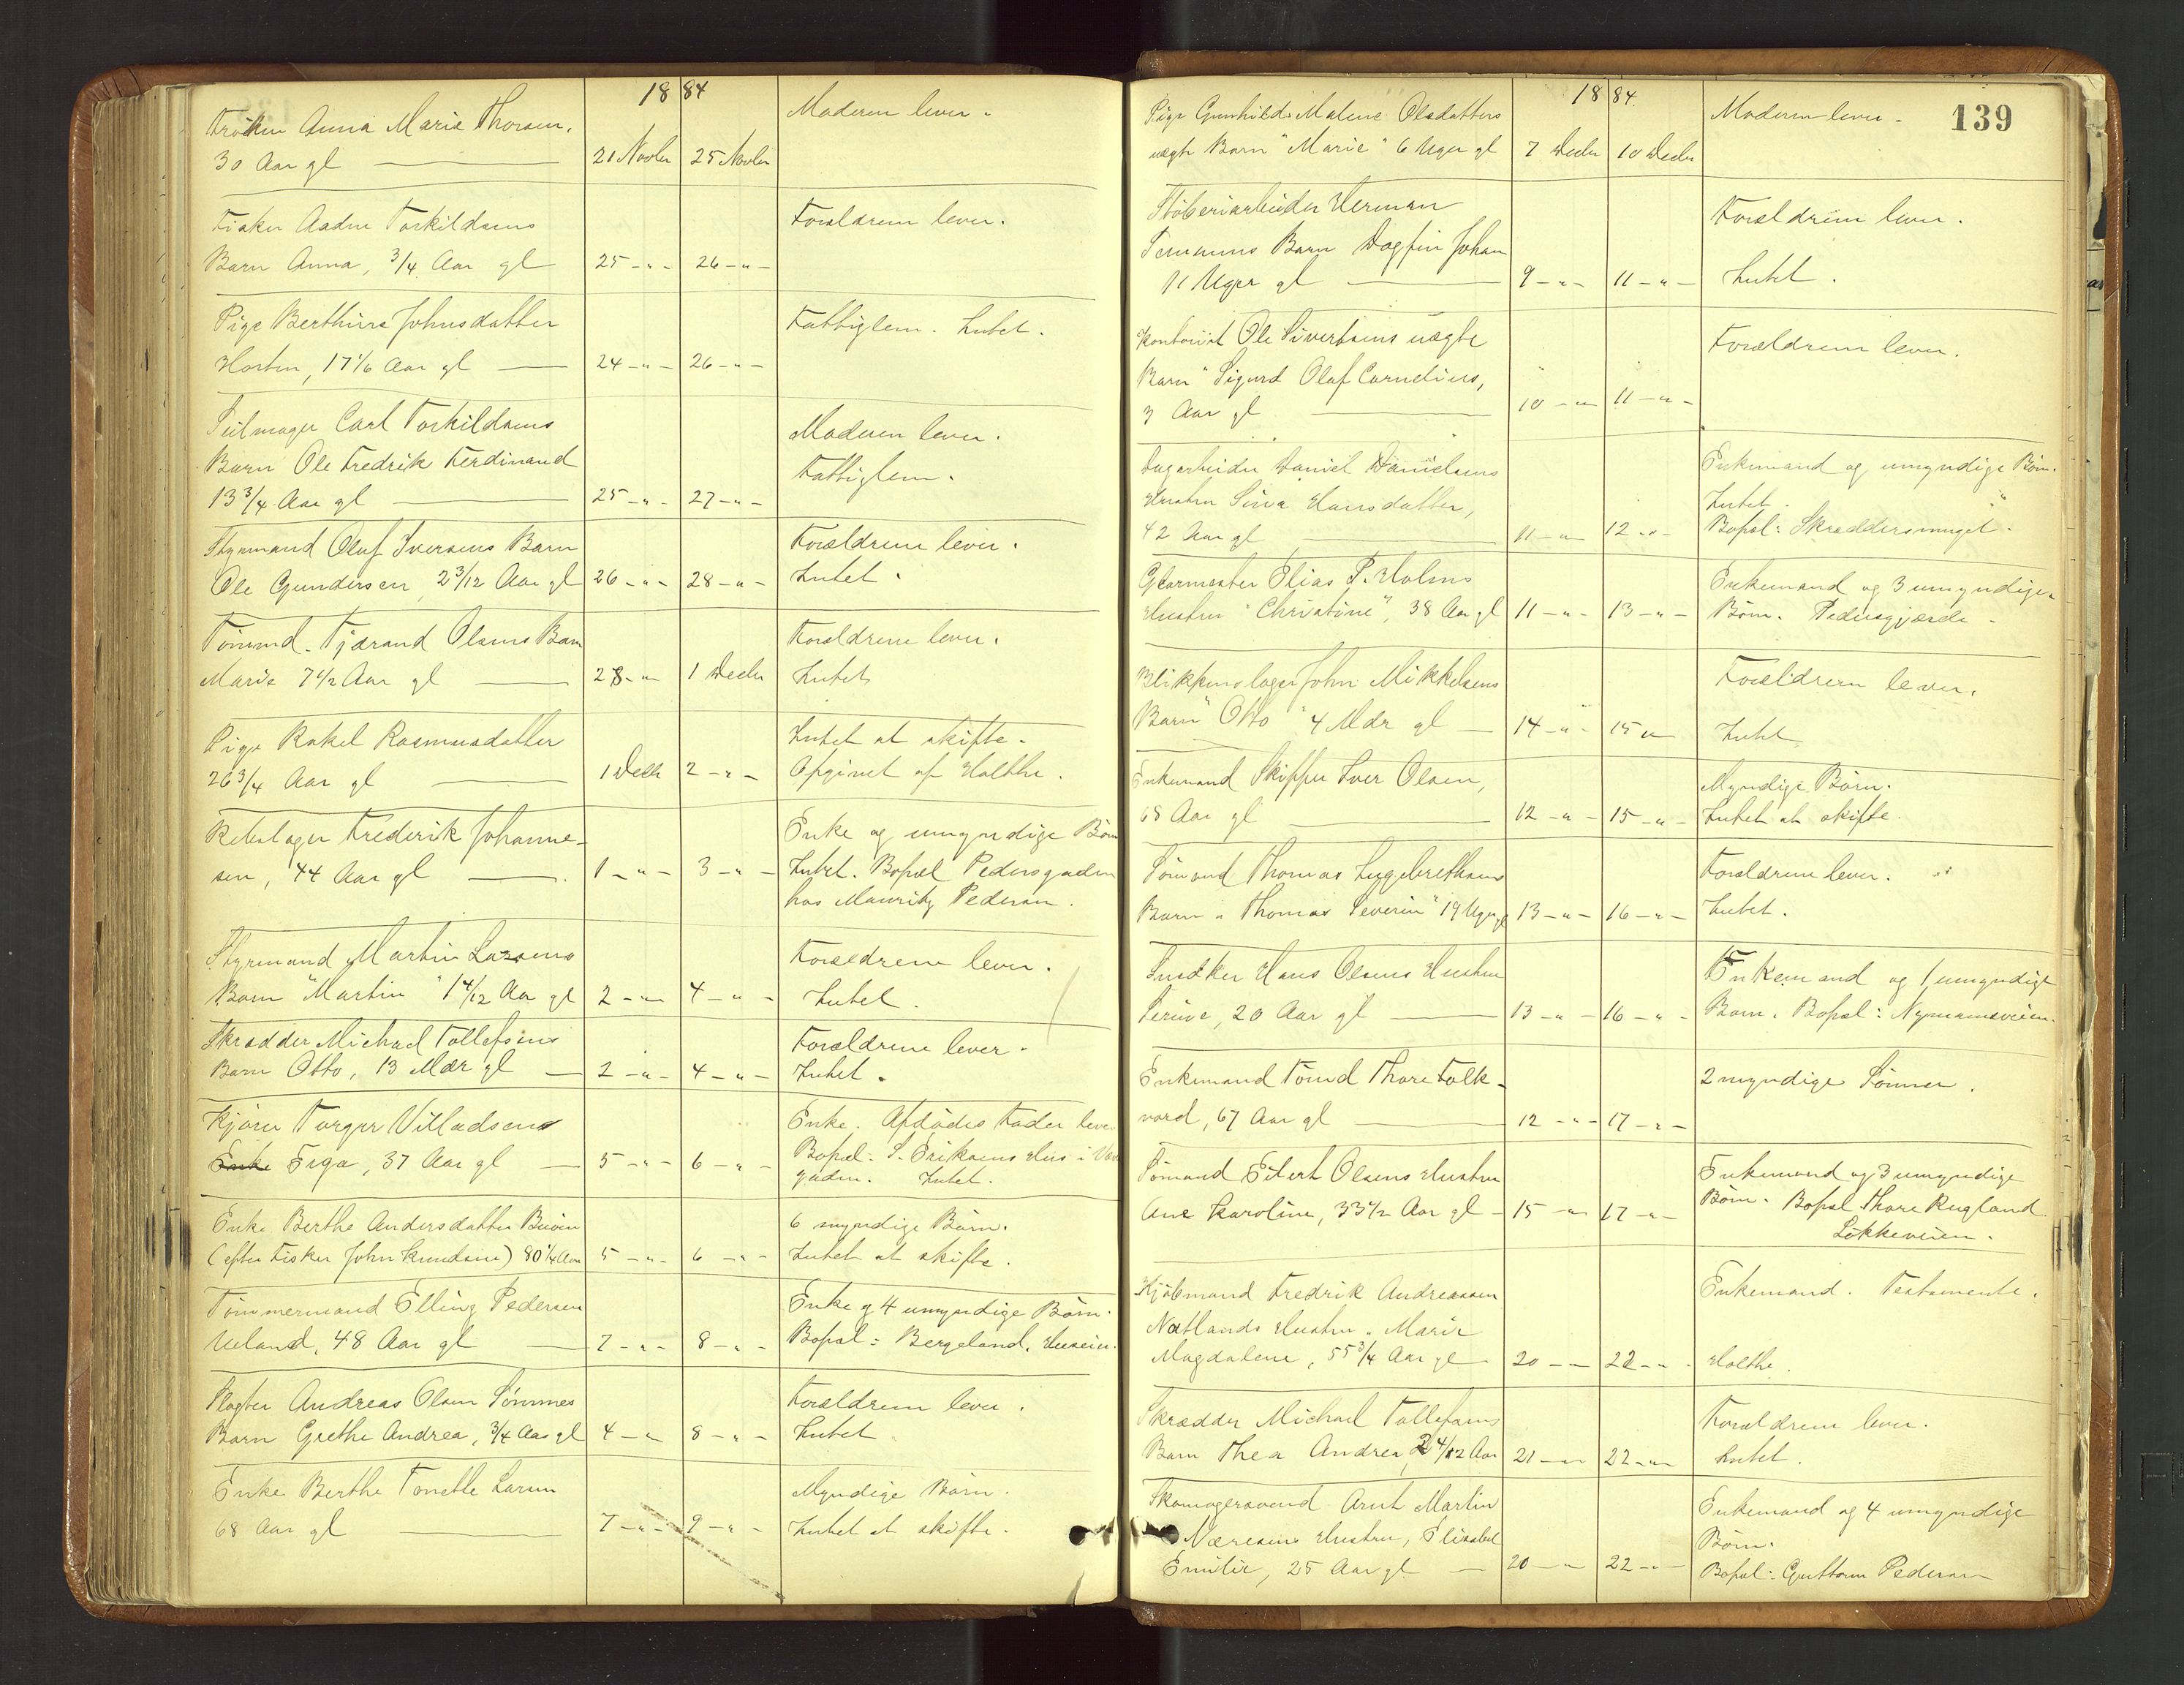 18 84
Frøken Anna Marie Thorsen,
30 Aar gl — 21 Novbr 25 Novbr Moderen lever.
Fisker Aadne Torkildsens Forældrene lever.
Barn Anna, 3/4 Aar gl 25 -"- 26 -"-
Pige Berthine Johnsdatter Fattiglem. Intet.
Horten, 17 1/6 Aar gl — 24 -"- 26 -"-
Seilmager Carl Torkildsens Moderen lever.
Barn Ole Fredrik Ferdinand Fattiglem.
13 3/4 Aar gl — 25 -"- 27 -"-
Styrmand Olaf Iversens Barn Forældrene lever.
Ole Gundersen, 2 3/12 Aar gl 26 -"- 28 -"- Intet.
Tømmd. Tjærand Olsens Barn Forældrene lever.
Marie 7 1/2 Aar gl — 28 -"- 1 Decbr Intet
Pige Rakel Rasmusdatter Intet at skifte.
26 3/4 Aar gl — 1 Decbr 2 -"- Opgivet af Holthe.
Rebslager Frederik Johanne- Enke og umyndige Børn
sen, 44 Aar gl — 1 -"- 3 -"- Intet. Bopæl Pedersgaden
hos Mauritz Pedersen.
Styrmand Martin Larsens Forældrene lever.
Barn "Martin" 1 4/12 Aar gl 2 -"- 4 -"- Intet.
Skrædder Michael Tollefsens Forældrene lever.
Barn Otto, 13 Mdr gl — 2 -"- 4 -"- Intet.
Kjører Torger Villadsens Enke. Afdødes Fader lever
Enke Erga, 37 Aar gl — 5 -"- 6 -"- Bopæl: S. Eriksens Hus i
gaden. Intet.
Enke Berthe Andersdatter 6 myndige Børn.
(efter Fisker John Knudsen) 80 1/4 Aar 5 -"- 6 -"- Intet at skifte.
Tømmermand Elling Pedersen Enke og 4 umyndige Børn.
Ueland, 48 Aar gl — 7 -"- 8 -"- Bopæl: Bergeland.
Slagter Andreas Olsen Sømmes Forældrene lever.
Barn Grethe Andrea, 3/4 Aar gl 4 -"- 8 -"- Intet
Enke Berthe Tonette Larsen Myndige Børn.
68 Aar gl — 7 -"- 9 -"- Intet at skifte.
18 84. 139
Pige Gunhild Malene Olsdatters Moderen lever.
uægte Barn "Marie" 6 Uger gl 7 Decbr 10 Decbr
Støberiarbeider Herman Forældrene lever.
Barn Dagfin Johan
11 Uger gl — 9 -"- 11 -"- Intet.
Kontorist Ole Sivertsens uægte Forældrene lever.
Barn "Sigurd Olaf Cornelius,
3 Aar gl — 10 -"- 11 -"-
Dagarbeider Daniel Danielsens Enkemand og umyndige Børn.
Hustru Sina Hansdatter, Intet.
42 Aar gl — 11 -"- 12 -"- Bopæl: Skræddersmuget.
Glarmester Elias P. Holms Enkemand og 3 umyndige
Hustru "Christine", 38 Aar gl 11 -"- 13 -"- Børn. Pedersgjærde.
Blikkenslager John Mikkelsens Forældrene lever.
Barn "Otto" 4 Mdr gl — 14 -"- 15 " Intet
Enkemand Skipper Iver Olsen, Myndige Børn.
68 Aar gl — 12 -"- 15 -"- Intet at skifte.
Sømand Thomas Ingebrethsens Forældrene lever.
Barn "Thomas Severin" 19 Uger gl 13 -"- 16 -"- Intet.
Snedker Hans Olsens Hustru Enkemand og 1 umyndigt
Serine, 20 Aar gl — 13 -"- 16 -"- Barn. Bopæl: Nymansveien.
Enkemand Tømd Thore Folk- 2 myndige Sønner.
vord, 67 Aar gl — 12 -"- 17 -"-
Sømand Eilert Olsens Hustru Enkemand og 3 umyndige
Ane Karoline, 33 1/2 Aar gl - 15 -"- 17 -"- Børn. Bopæl Thore Rugland
Løkkeveien.
Kjøbmand Fredrik Andreassen Enkemand. Testamente.
Natlands Hustru, Marie
Magdalene, 55 3/4 Aar gl 20 -"- 22 -"- Holthe.
Skrædder Michael Tollefsens Forældrene lever.
Barn Thea Andrea, 2 4/12 Aar 21 -"- 22 -"- Intet.
Skomagersvend Arnt Martin Enkemand og 4 umyndige
Næresens Hustru, Elisabet Børn.
Emilie, 25 Aar gl — 20 -"- 22 -"- Bopæl: Guttorm Pedersen